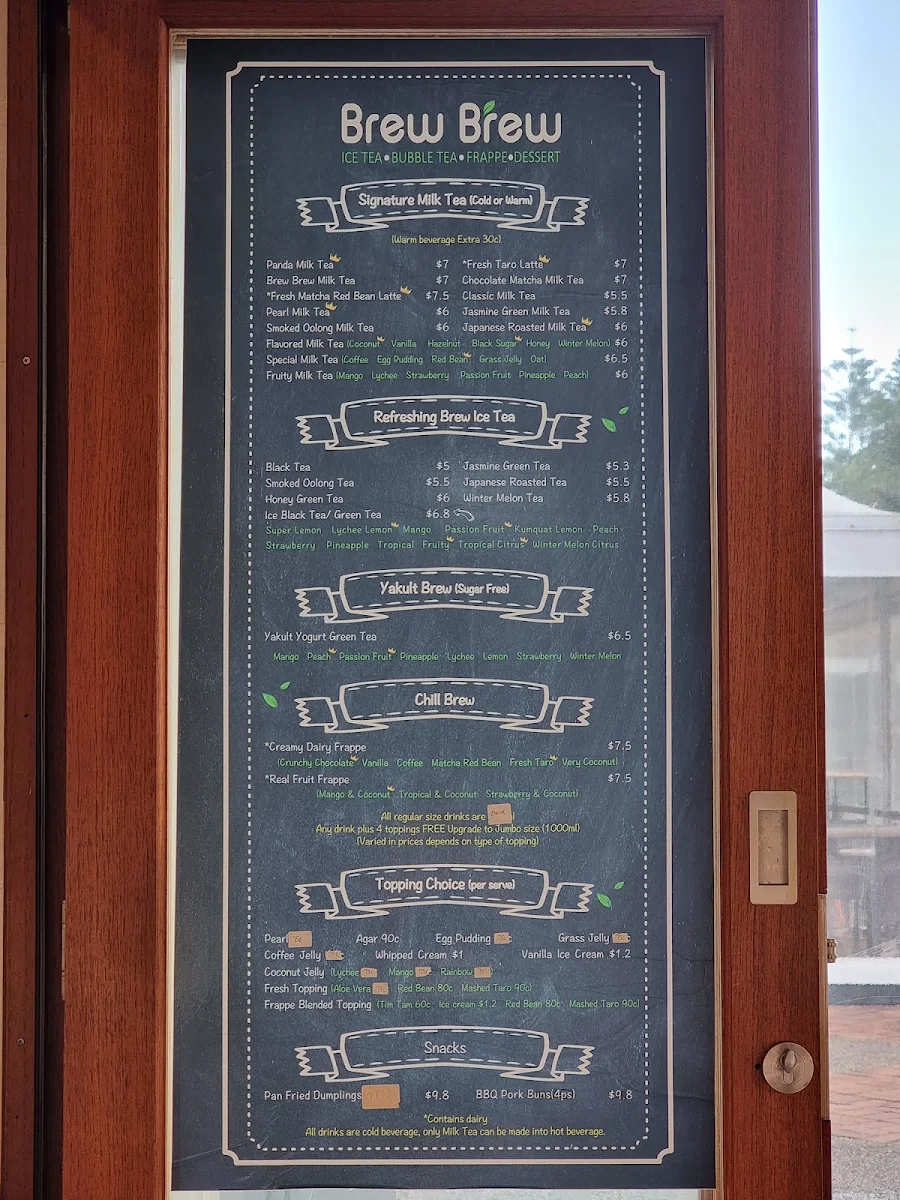 Brew Brew
ICE TEA•BUBBLE TEA•FRAPPE•DESSERT
Signature Milk Tea (Cold or Warm)
(Warm beverage Extra 30c)
Panda Milk Tea $7 *Fresh Taro Latte $7
Brew Brew Milk Tea $7 Chocolate Matcha Milk Tea $7
*Fresh Matcha Red Bean Latte $7.5 Classic Milk Tea $5.5
Pearl Milk Tea $6 Jasmine Green Milk Tea $5.8
Smoked Oolong Milk Tea $6 Japanese Roasted Milk Tea $6
Flavored Milk Tea (Coconut Vanilla Hazelnut Black Sugar Honey Winter Melon) $6
Special Milk Tea (Coffee Egg Pudding Red Bean Grass Jelly Oat) $6.5
Fruity Milk Tea (Mango Lychee Strawberry Passion Fruit Pineapple Peach) $6
Refreshing Brew Ice Tea
Black Tea $5 Jasmine Green Tea $5.3
Smoked Oolong Tea $5.5 Japanese Roasted Tea $5.5
Honey Green Tea $6 Winter Melon Tea $5.8
Ice Black Tea/ Green Tea $6.8
Super Lemon Lychee Lemon Mango Passion Fruit Kumquat Lemon Peach
Strawberry Pineapple Tropical Fruity Tropical Citrus Winter Melon Citrus
Yakult Brew (Sugar Free)
Yakult Yogurt Green Tea $6.5
Mango Peach Passion Fruit Pineapple Lychee Lemon Strawberry Winter Melon
Chill Brew
*Creamy Dairy Frappe $7.5
(Crunchy Chocolate Vanilla Coffee Matcha Red Bean Fresh Taro Very Coconut)
*Real Fruit Frappe $7.5
(Mango & Coconut Tropical & Coconut Strawberry & Coconut)
All regular size drinks are
Any drink plus 4 toppings FREE Upgrade to Jumbo size (1000ml)
(Varied in prices depends on type of topping)
Topping Choice (per serve)
Pearl Agar 90c Egg Pudding Grass Jelly
Coffee Jelly Whipped Cream $1 Vanilla Ice Cream $1.2
Coconut Jelly (Lychee Mango Rainbow )
Fresh Topping (Aloe Vera Red Bean 80c Mashed Taro 90c)
Frappe Blended Topping (Tim Tam 60c Ice cream $1.2 Red Bean 80c Mashed Taro 90c)
Snacks
Pan Fried Dumplings $9.8 BBQ Pork Buns(4ps) $9.8
*Contains dairy
All drinks are cold beverage, only Milk Tea can be made into hot beverage.